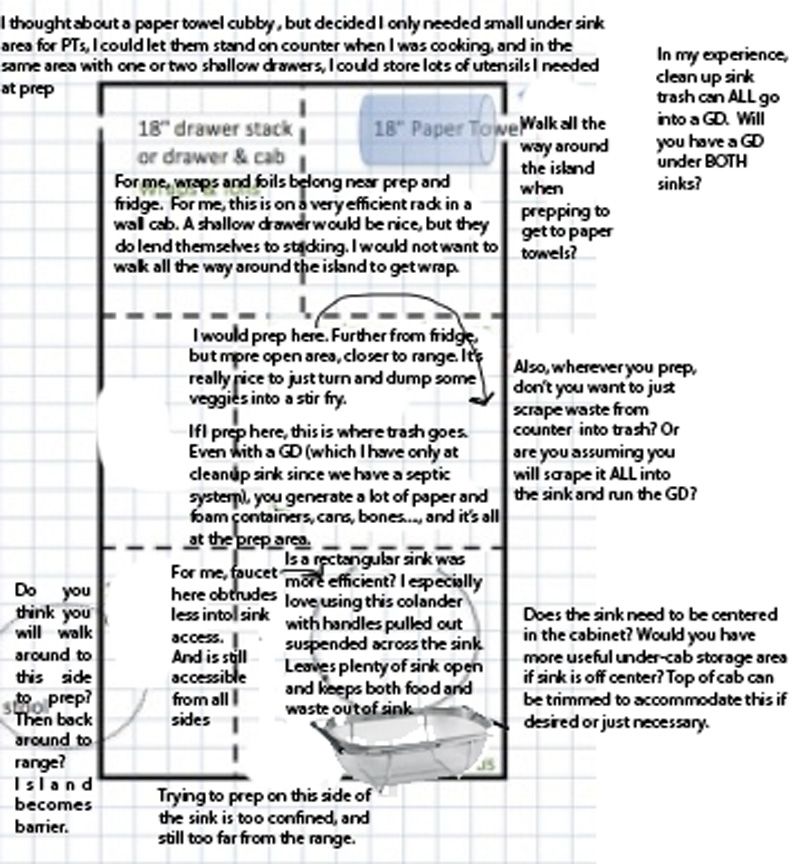 I thought about a paper towel cubby, but decided I only needed small under sink
area for PTs, I could let them stand on counter when I was cooking, and in the
same area with one or two shallow drawers, I could store lots of utensils I needed
at prep
In my experience,
clean up sink
trash can ALL go
into a GD. Will
you have a GD
under BOTH
sinks?
18" drawer stack
or drawer & cab
18" Paper Towel
Walk all the
way around
the island
when
prepping to
get to paper
towels?
For me, wraps and foils belong near prep and
fridge. For me, this is on a very efficient rack in a
wall cab. A shallow drawer would be nice, but they
do lend themselves to stacking. I would not want to
walk all the way around the island to get wrap.
I would prep here. Further from fridge,
but more open area, closer to range. It's
really nice to just turn and dump some
veggies into a stir fry.
If I prep here, this is where trash goes.
Even with a GD (which I have only at
cleanup sink since we have a septic
system), you generate a lot of paper and
foam containers, cans, bones..., and it's all
at the prep area.
Also, wherever you prep,
don't you want to just
scrape waste from
counter into trash? Or
are you assuming you
will scrape it ALL into
the sink and run the GD?
Do you
think you
will walk
around to
this side
to prep?
Then back
around to
range?
Island
becomes
barrier.
For me, faucet
here obtrudes
less into sink
access.
And is still
accessible
from all
sides
Is a rectangular sink was
more efficient? I especially
love using this colander
with handles pulled out
suspended across the sink.
Leaves plenty of sink open
and keeps both food and
waste out of sink.
Does the sink need to be centered
in the cabinet? Would you have
more useful under-cab storage area
if sink is off center? Top of cab can
be trimmed to accommodate this if
desired or just necessary.
JS
Trying to prep on this side of
the sink is too confined, and
still too far from the range.